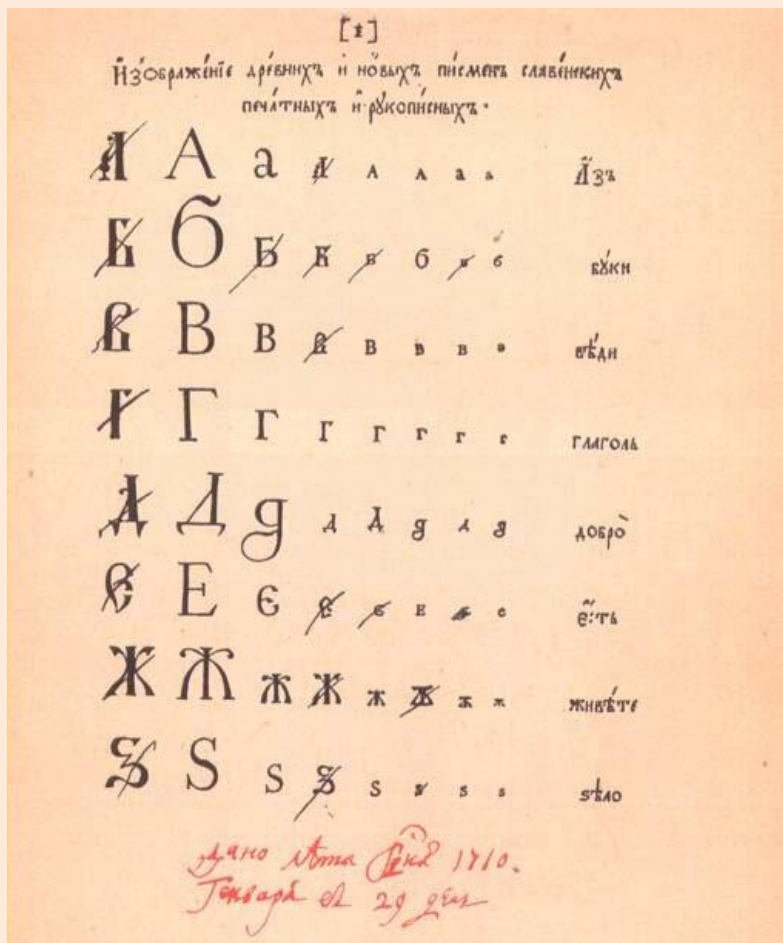 [а҃]
И҆зѡбраже́нїе дре́внихъ и҆ но́выхъ пи́сменъ славе́нскихъ
печа́тныхъ и҆ рꙋкопи́сныхъ.
А А а А А А а а А҆́зъ
Б Б Б Б Б б Б б бꙋ́ки
В В В В В В В в вѣ́ди
Г Г Г Г Г Г Г г глаголь
Д Д д Д Д д Д д добро̀
Є Е є Є є Е е е є҆́сть
Ж Ж Ж Ж Ж Ж Ж ж живѣ́те
Ѕ Ѕ ѕ Ѕ ѕ ѕ ѕ ѕ ѕѣло
дано лѣта 1710.
Генваря 29 дня